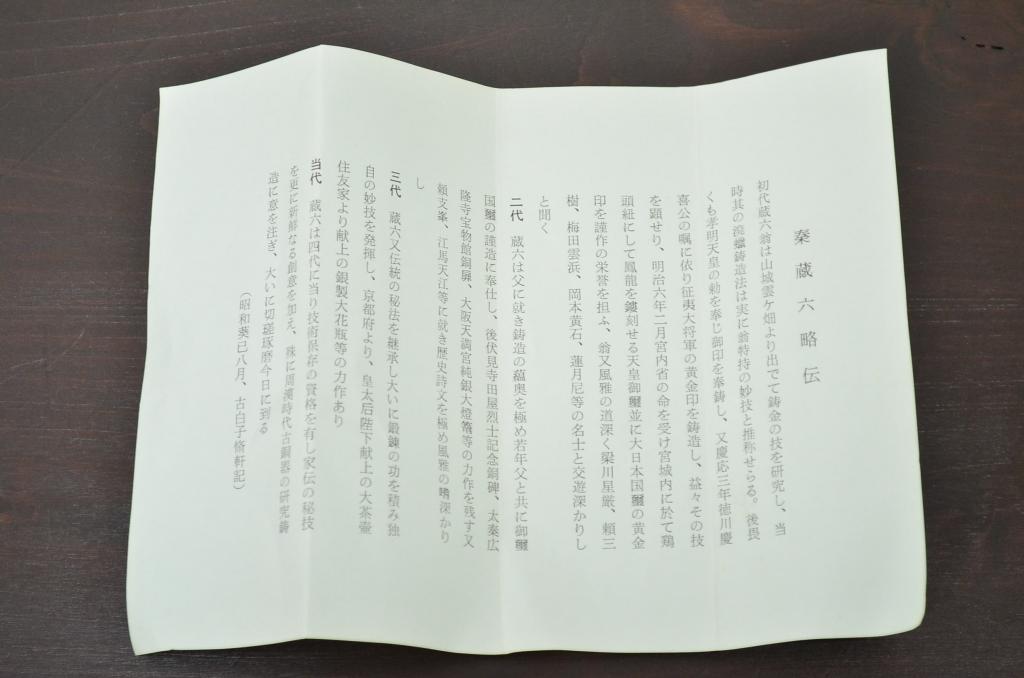 秦蔵六略伝
初代蔵六翁は山城雲ケ畑より出でて鋳金の技を研究し、当
時其の流蠟鋳造法は実に翁特持の妙技と推称せらる。後畏
くも孝明天皇の勅を奉じ御印を奉鋳し、又慶応三年徳川慶
喜公の嘱に依り征夷大将軍の黄金印を鋳造し、益々その技
を顕せり、明治六年二月宮内省の命を受け宮城内に於て鶏
頭紐にして鳳龍を鏤刻せる天皇御璽並に大日本国璽の黄金
印を謹作の栄誉を担ふ、翁又風雅の道深く梁川星厳、頼三
樹、梅田雲浜、岡本黄石、蓮月尼等の名士と交遊深かりし
と聞く
二代 蔵六は父に就き鋳造の蘊奥を極め若年父と共に御璽
国璽の謹造に奉仕し、後伏見寺田屋烈士記念銅碑、太秦広
隆寺宝物館銅扉、大阪天満宮純銀大燈籠等の力作を残す又
頼支峯、江馬天江等に就き歴史詩文を極め風雅の嗜深かり
し
三代 蔵六又伝統の秘法を継承し大いに鍛錬の功を積み独
自の妙技を発揮し、京都府より、皇太后陛下献上の大茶壷
住友家より献上の銀製大花瓶等の力作あり
当代 蔵六は四代に当り技術保存の資格を有し家伝の秘技
を更に新鮮なる創意を加え、殊に周漢時代古銅器の研究鋳
造に意を注ぎ、大いに切磋琢磨今日に到る
(昭和葵巳八月、古白子脩軒記)